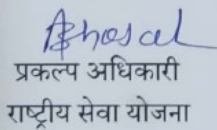 Bhosal
प्रकल्प अधिकारी
राष्ट्रीय सेवा योजना